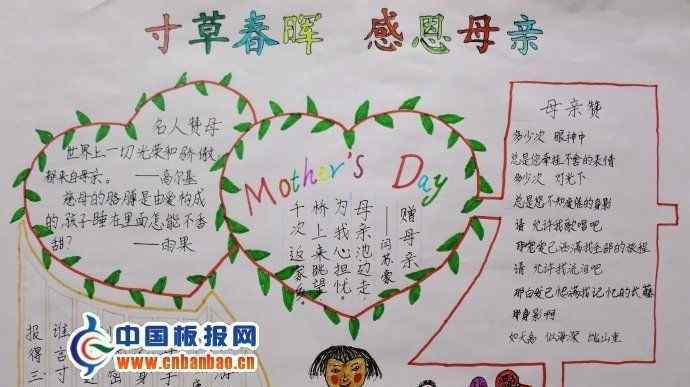 寸草春晖 感恩母亲
名人赞母
世界上一切光荣和骄傲
都来自母亲。 ——高尔基
慈母的胳膊是由爱构成
的,孩子睡在里面怎能不香
甜? ——雨果
Mother's Day
赠母亲
——闫苏蒙
母亲池边走,
为我心担忧。
桥上来眺望
千次返家
母亲赞
多少次 眼神中
总是您牵挂不舍的表情
多少次 灯光下
总是您不知疲倦的身影
请 允许我歌唱吧
请 允许我流泪吧
那白发已悠满我记忆的长
身影啊
如天高 似海深 比山重
谁言寸
报得三
中国板报网
www.cnbanbao.cn